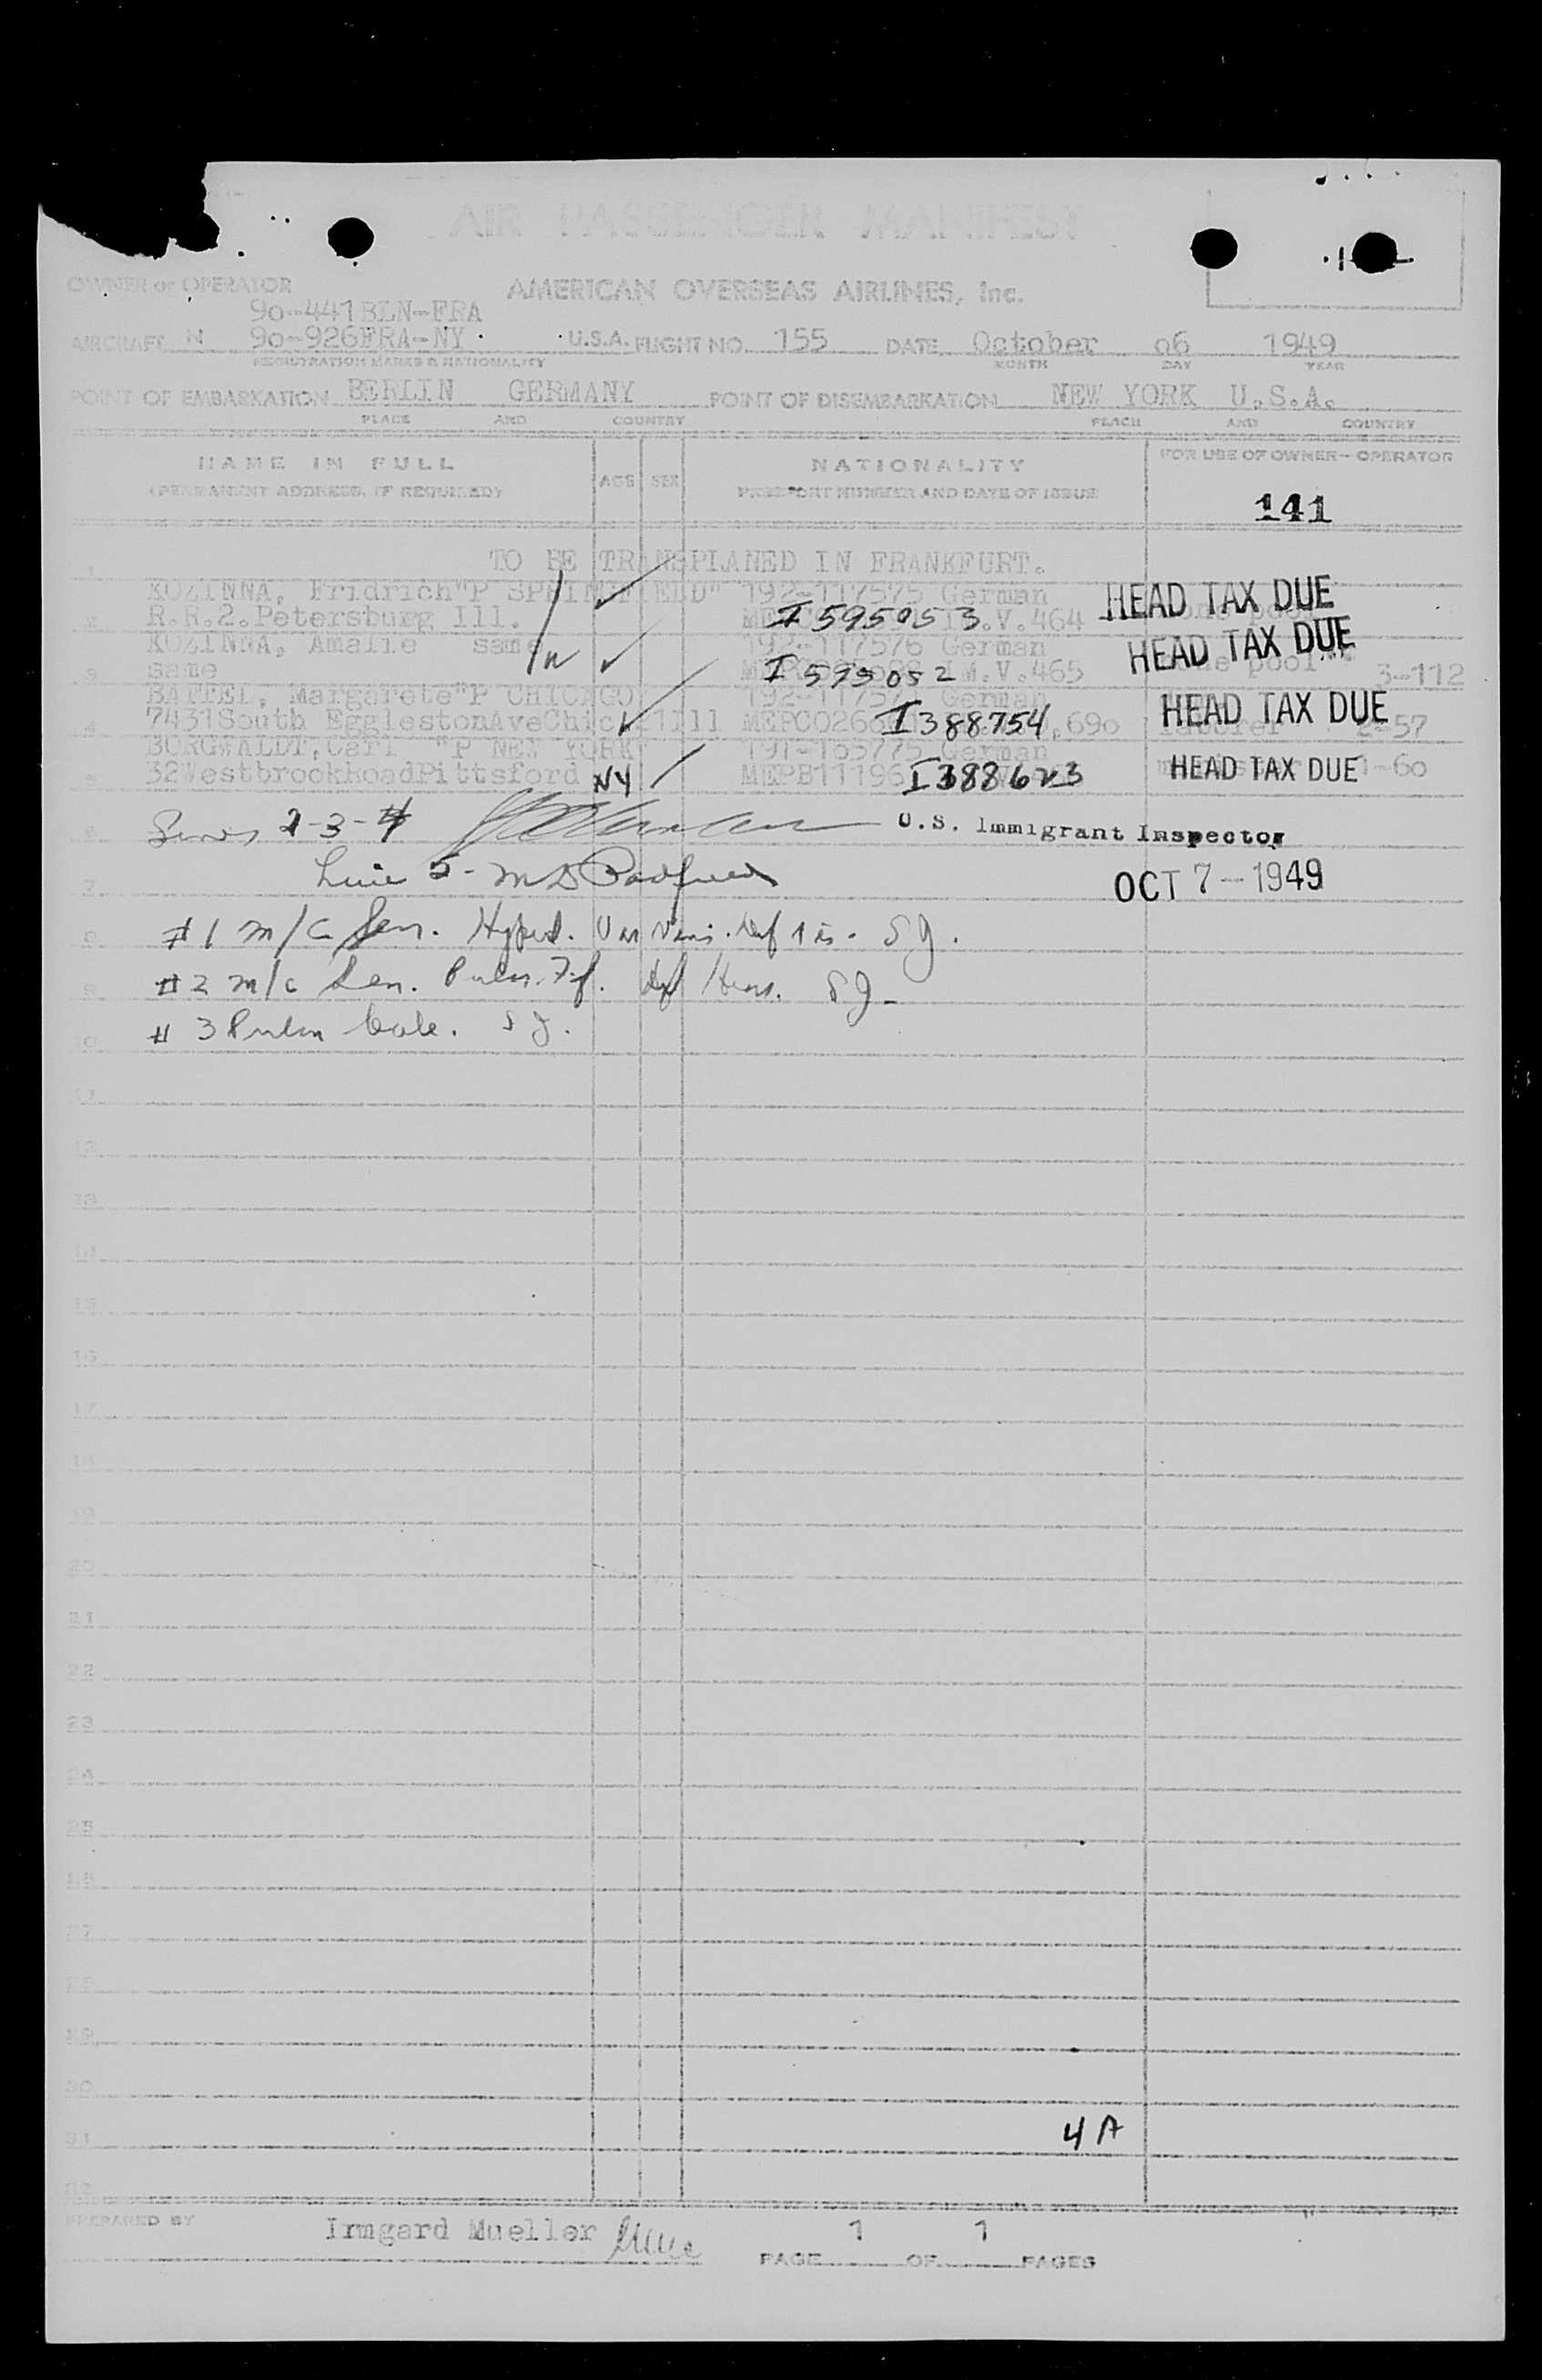 AIR PASSENGER MANIFEST
OWNER or OPERATOR AMERICAN OVERSEAS AIRLINES, Inc.
90-441BLN-FRA
AIRCRAFT N 90-926FRA-NY U.S.A. FLIGHT NO. 155 DATE October 06 1949
REGISTRATION MARKS & NATIONALITY MONTH DAY YEAR
POINT OF EMBARKATION BERLIN GERMANY POINT OF DISEMBARKATION NEW YORK U.S.A.
PLACE AND COUNTRY PLACE AND COUNTRY
NAME IN FULL AGE SEX NATIONALITY FOR USE OF OWNER-OPERATOR
(PERMANENT ADDRESS, IF REQUIRED) PASSPORT NUMBER AND DATE OF ISSUE
141
1 TO BE TRANSPLANED IN FRANKFURT.
KOZINNA, Fridrich"P SPRINGFIELD" 192-117575 German HEAD TAX DUE
2 R.R.2.Petersburg Ill. I 595053 .V.464
KOZINNA, Amalie same 192-117576 German HEAD TAX DUE
3 same I 595052 M.V.465 pool 3-112
BATTEL, Margarete"P CHICAGO German HEAD TAX DUE
4 7431South EgglestonAveChic 21Ill MEPCO26 I388754 ,690 laborer 2-57
BORGWALDT,Carl "P NEW YORK" 191-165775 German
5 32WestbrookRoadPittsford NY MEPB11196 I388623 HEAD TAX DUE 1-60
6 Lines 2-3-4 U.S. Immigrant Inspector
7 Line 5- OCT 7-1949
8 #1 m/c Sen. S J.
9 #2 m/c Sen. S J-
10 #3 Pulm S J.
11
12
13
14
15
16
17
18
19
20
21
22
23
24
25
26
27
28
29
30
31 4A
32
PREPARED BY Irmgard Mueller PAGE 1 OF 1 PAGES